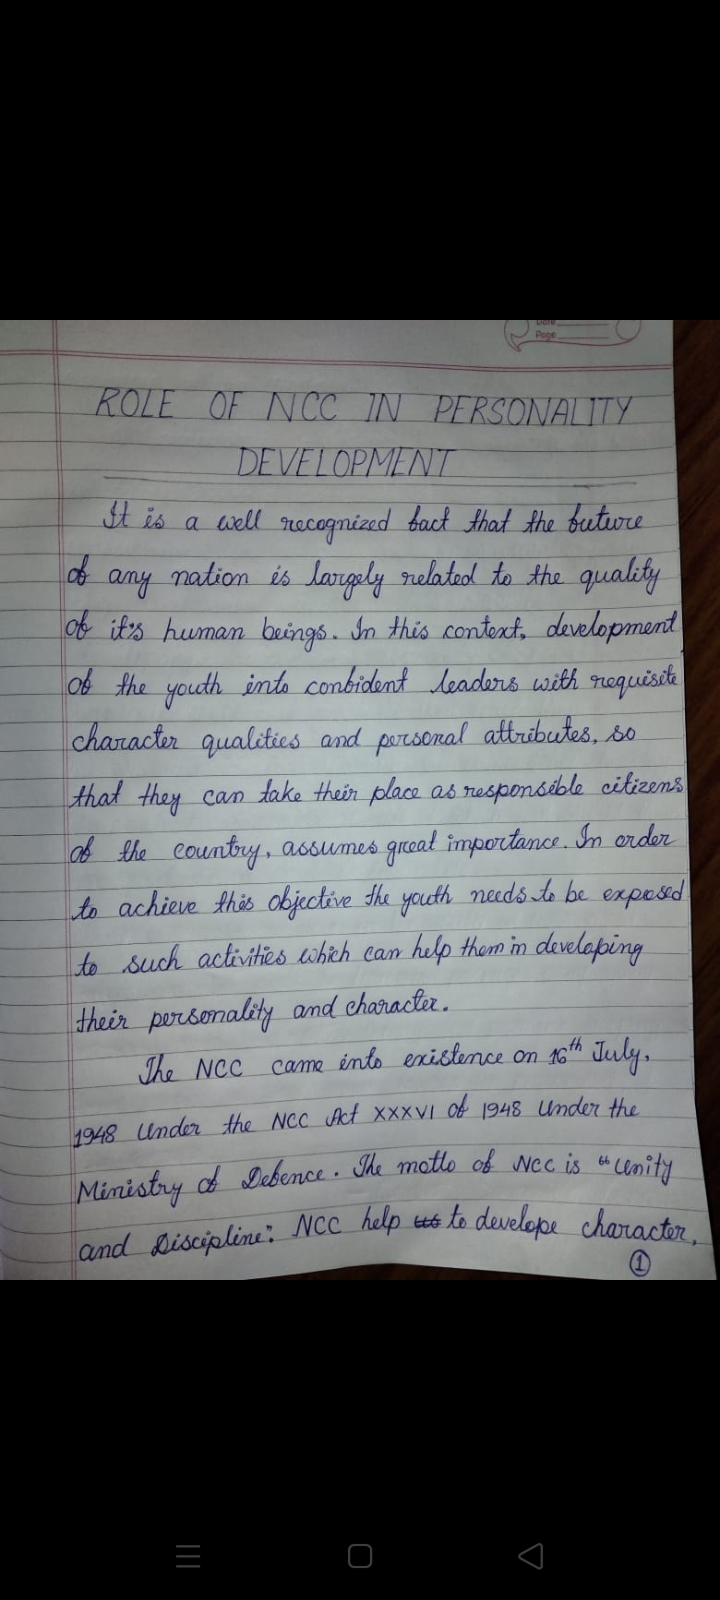 Date
Page
ROLE OF NCC IN PERSONALITY
DEVELOPMENT
It is a well recognized fact that the future
of any nation is largely related to the quality
of it's human beings. In this context, development
of the youth into confident leaders with requisite
character qualities and personal attributes, so
that they can take their place as responsible citizens
of the country, assumes great importance. In order
to achieve this objective the youth needs to be exposed
to such activities which can help them in developing
their personality and character.
The NCC came into existence on 16th July,
1948 under the NCC Act XXXVI of 1948 under the
Ministry of Defence. The motto of NCC is "Unity
and Discipline". NCC help to develope character,
1